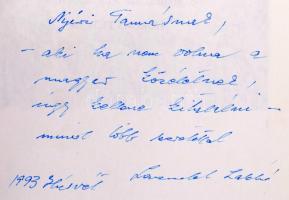 Nyíri Tamásnak,
– aki ha nem volna a
magyar közéletnek,
úgy kellene kitalálni –
minél több szeretettel
1993 Húsvét Lászlóˊ